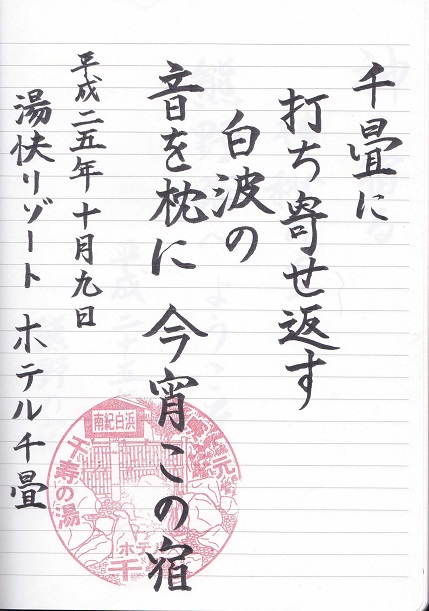 千畳に
打ち寄せ返す
白波の
音を枕に 今宵この宿
平成二五年十月九日
湯快リゾート ホテル千畳
南紀白浜
千寿の湯
ホテル千